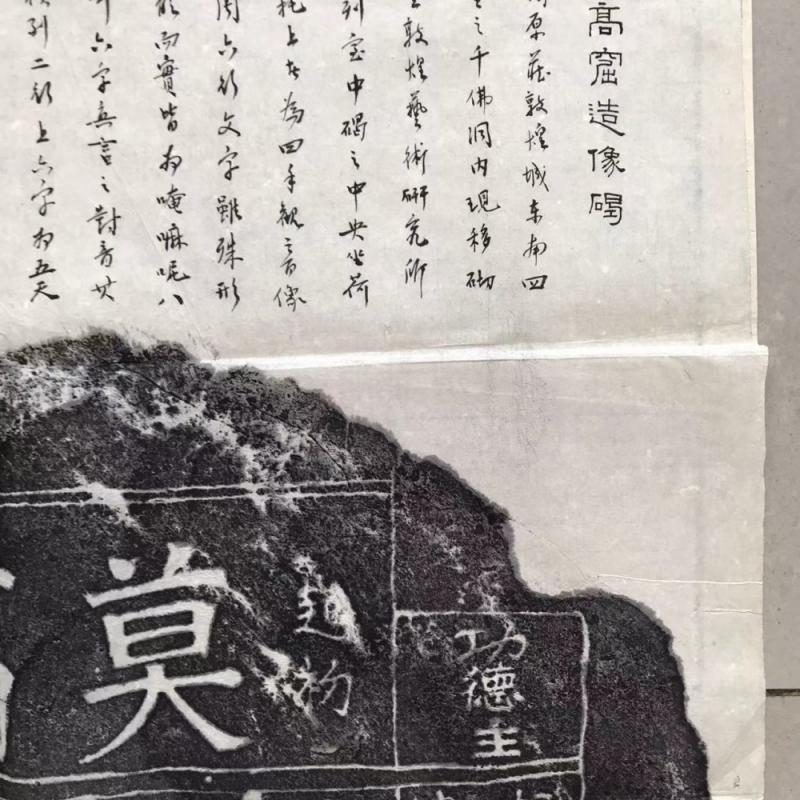 高窟造像碣
原藏敦煌城东南四
之千佛洞内现移砌
敦煌藝術研究所
列室中碣之中央坐荷
托上者為四手觀音像
周六行文字雖殊形
而實皆为唵嘛呢八
六字真言之對音其
列二行上六字为五天
功德主
莫